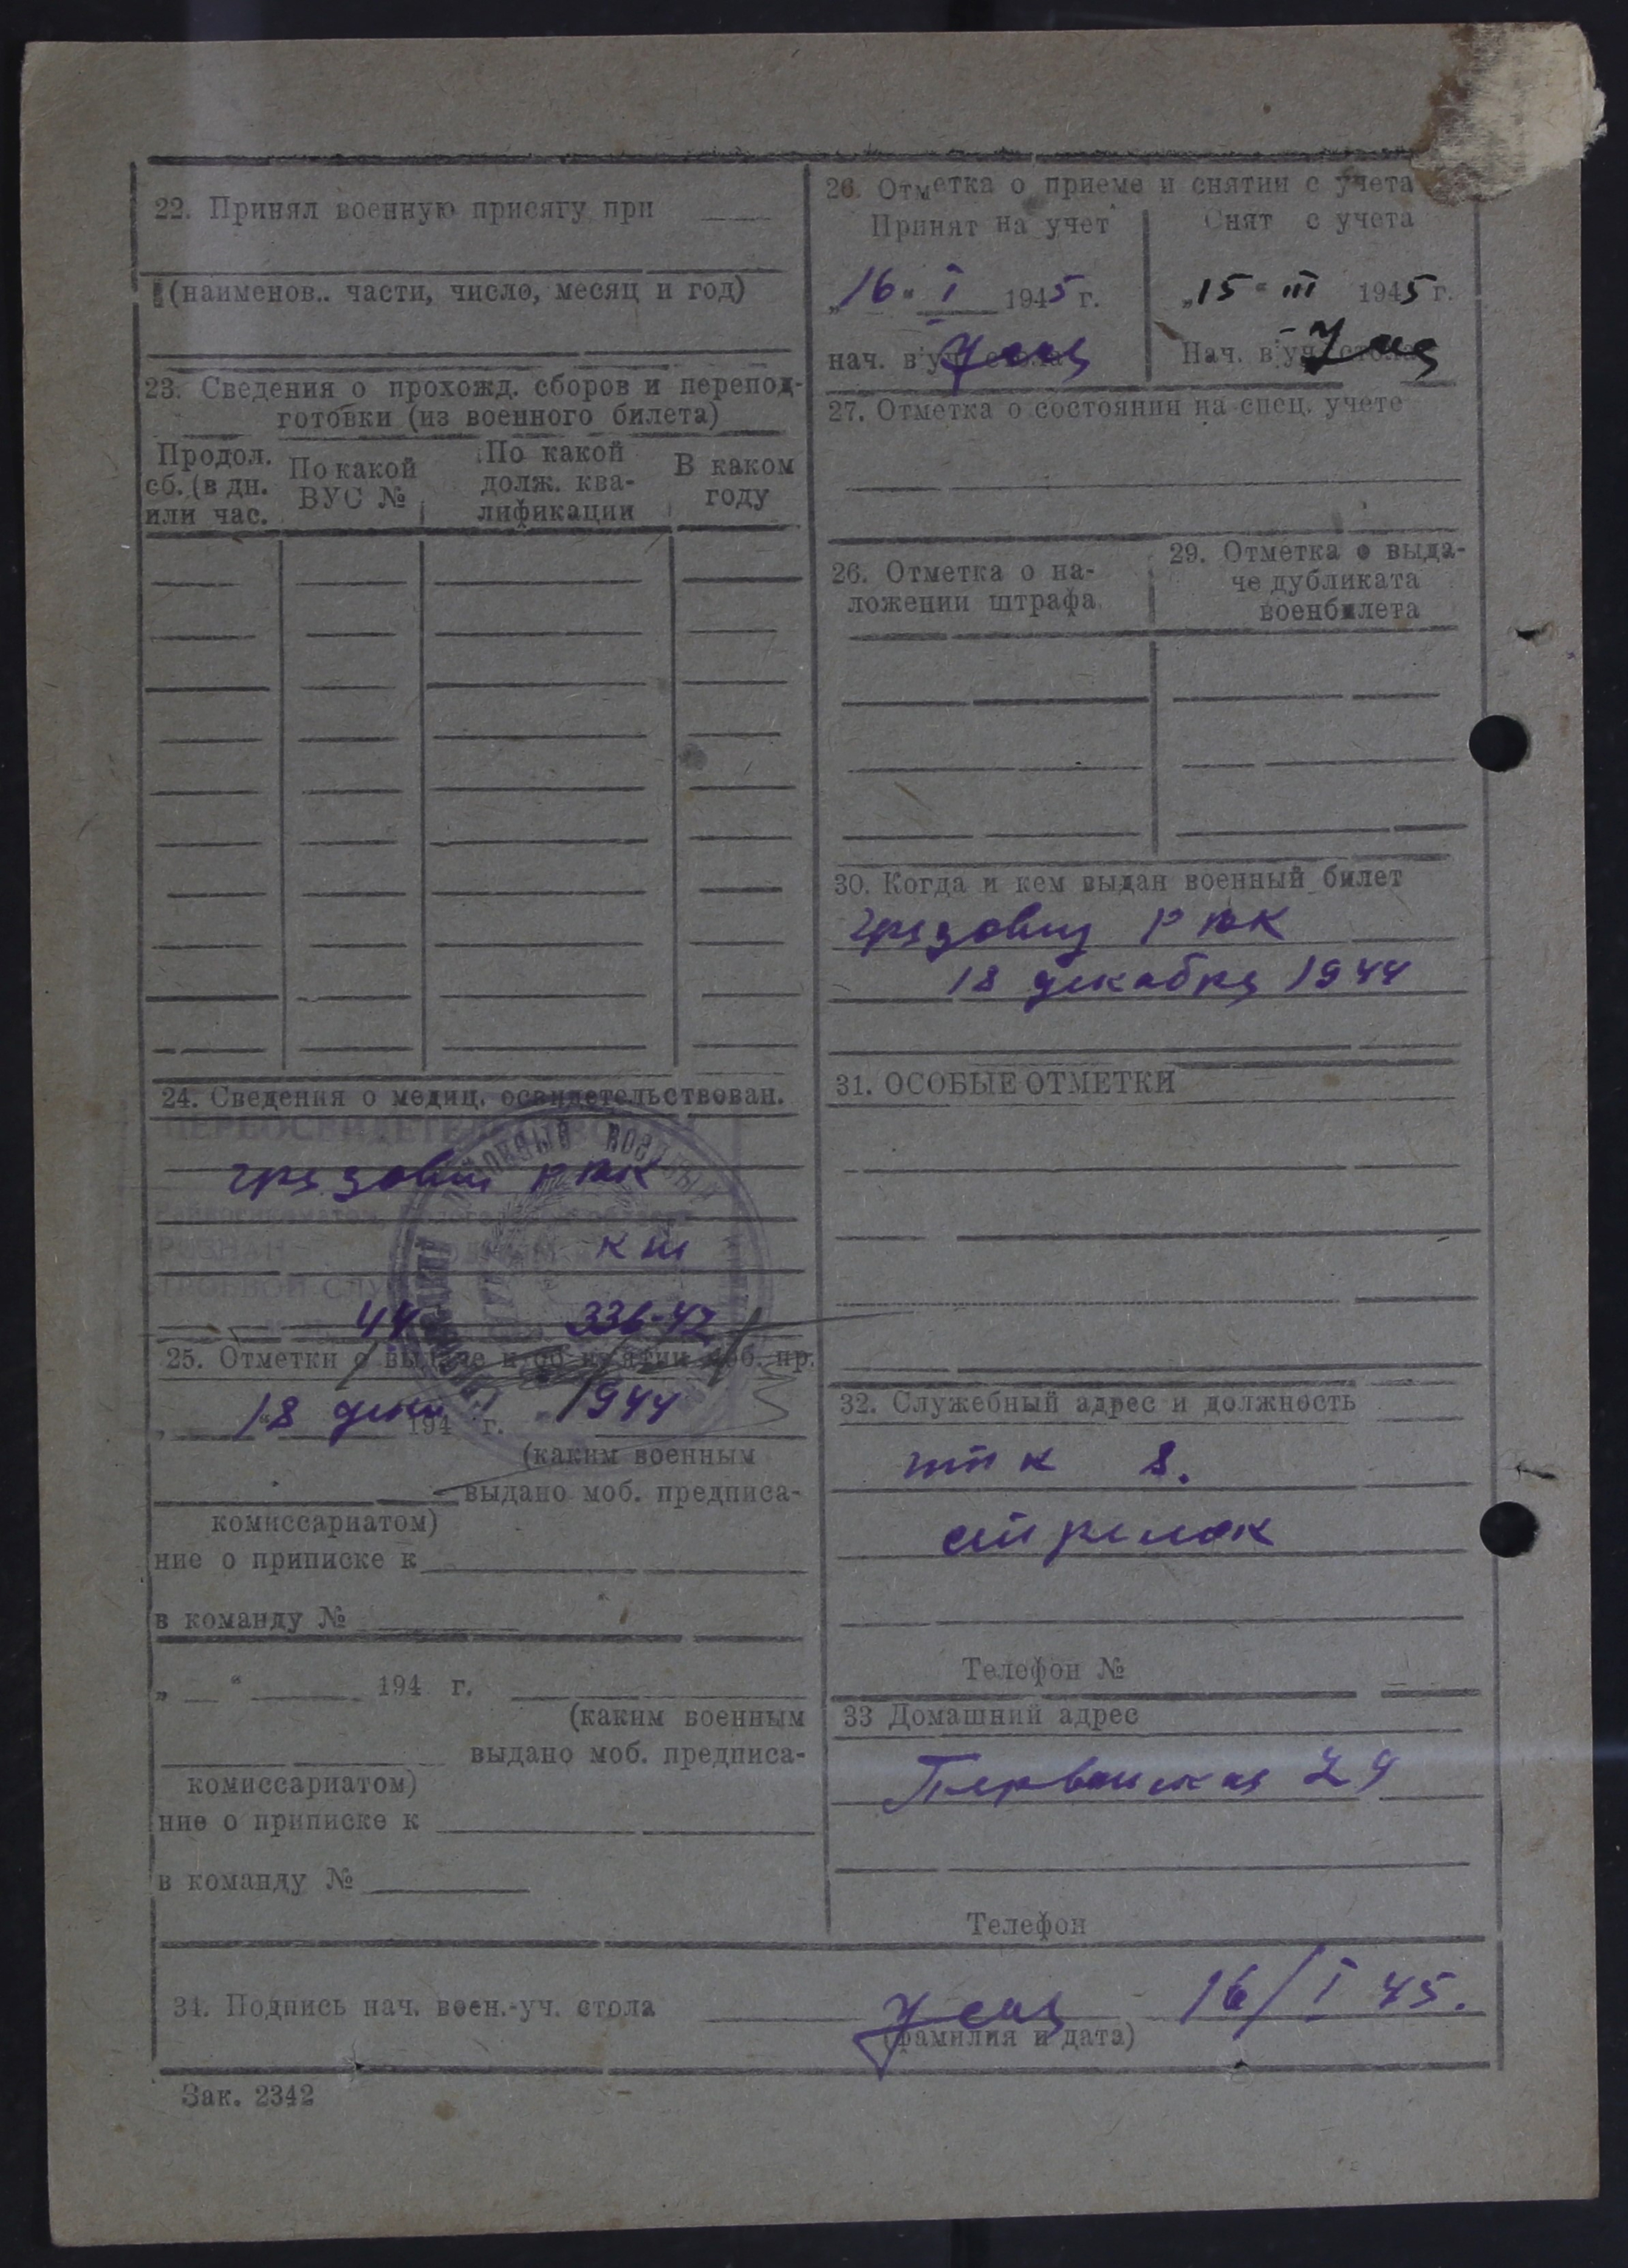 22. Принял военную присягу при
(наименов.. части, число, месяц и год)
23. Сведения о прохожд. сборов и перепод-
готовки (из военного билета)
Продол. сб. (в дн. или час.
По какой ВУС №
По какой долж. ква-
лификации
В каком году
24. Сведения о медиц. освидетельствован.
ПЕРЕОСВИДЕТЕЛЬ
грязовец РВК
СТРОЕВОЙ СЛУ
44 336-42
25. Отметки о выдаче и об из'ятии моб. пр.
„18 дека 194 г. 1944
(каким военным
выдано моб. предписа-
комиссариатом)
ние о приписке к
в команду №
„ “ 194 г.
(каким военным
выдано моб. предписа-
комиссариатом)
ние о приписке к
в команду №
26. Отметка о приеме и снятии с учета
Принят на учет
Снят с учета
„16“ I 1945 г.
„15“ III 1945 г.
нач. в уч. стола
Нач. в уч. стола
27. Отметка о состоянии на спец. учете
26. Отметка о на-
ложении штрафа
29. Отметка о выда-
че дубликата
военбилета
30. Когда и кем выдан военный билет
грязовец РВК
18 декабря 1944
31. ОСОБЫЕ ОТМЕТКИ
32. Служебный адрес и должность
8.
стрелок
Телефон №
33 Домашний адрес
29
Телефон
34. Подпись нач. воен.-уч. стола
16/I 45.
(фамилия и дата)
Зак. 2342